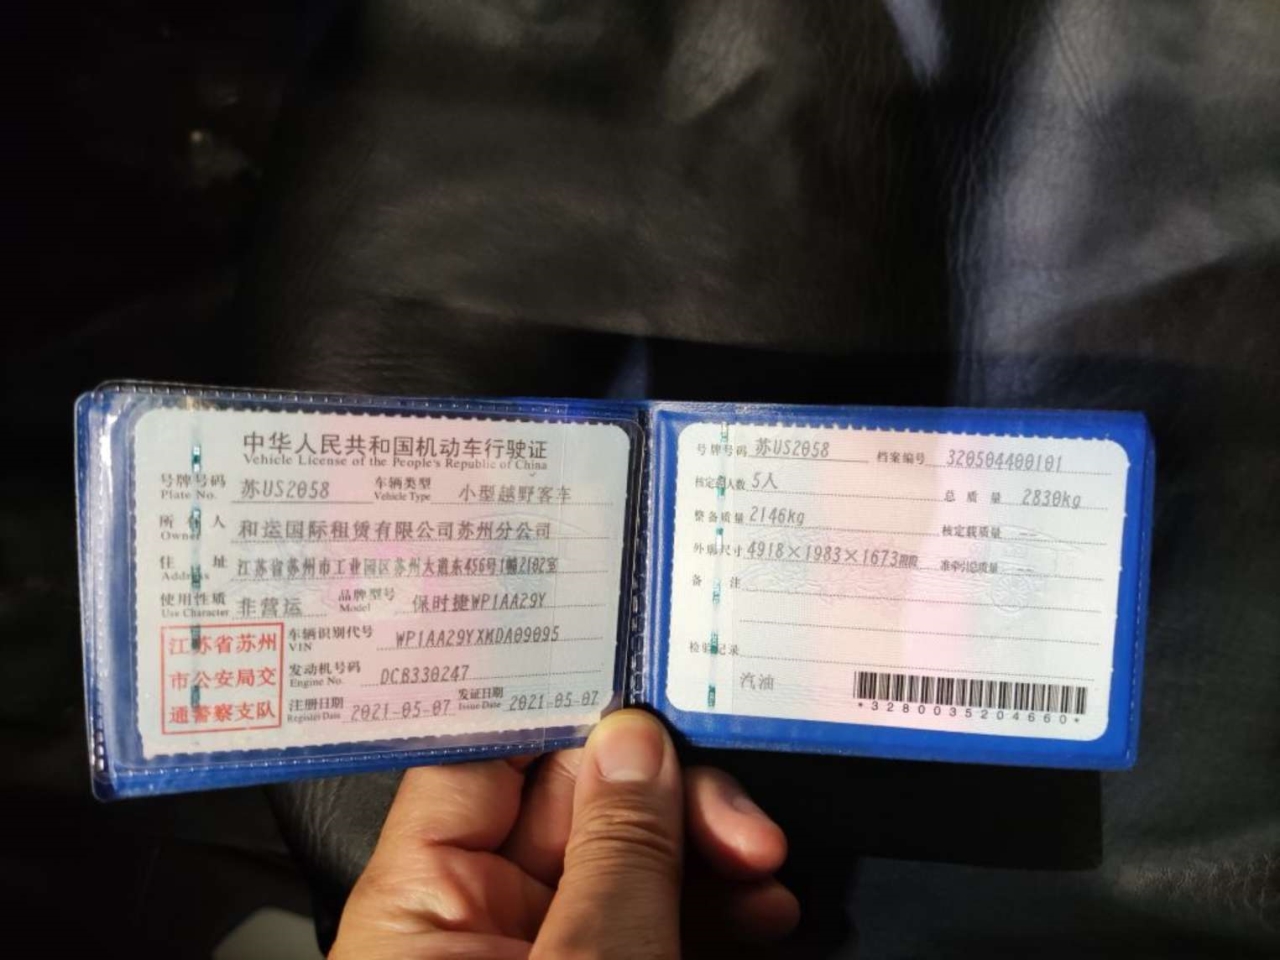 中华人民共和国机动车行驶证
Vehicle License of the People's Republic of China
号牌号码 苏US2058 车辆类型 小型越野客车
Plate No. Vehicle Type
所有人 和运国际租赁有限公司苏州分公司
Owner
住址 江苏省苏州市工业园区苏州大道东456号1幢2102室
Address
使用性质 非营运 品牌型号 保时捷WP1AA29Y
Use Character Model
江苏省苏州
市公安局交
通警察支队
车辆识别代号 WP1AA29YXMDA09095
VIN
发动机号码 DCB330247
Engine No.
注册日期 2021-05-07 发证日期 2021-05-07
Register Date Issue Date
号牌号码 苏US2058 档案编号 320504400101
核定载人数 5人 总质量 2830kg
整备质量 2146kg 核定载质量 --
外廓尺寸 4918×1983×1673mm 准牵引总质量 --
备注
检验记录
汽油
*3280035204660*